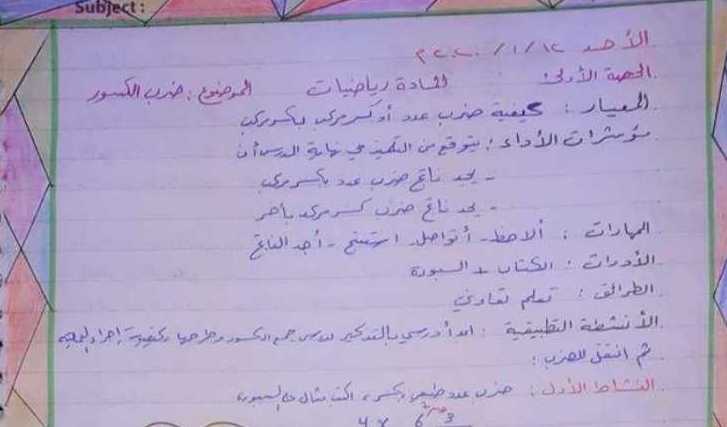 Subject:
الأحد ١٢/١/٢٠٢٠م
الحصة الأولى المادة رياضيات الموضوع: ضرب الكسور
المعيار: كيفية ضرب عدد أو كسر مركب بكسر مركب
مؤشرات الأداء: يتوقع من التلميذ في نهاية الدرس أن
- يجد ناتج ضرب عدد بكسر مركب
- يجد ناتج ضرب كسر مركب بآخر
المهارات: ألاحظ - أتواصل - استنتج - أجد الناتج
الأدوات: الكتاب + السبورة
الطرائق: تعلم تعاوني
الأنشطة التطبيقية: ابدأ درسي بالتذكير بدرس جمع الكسور وطرحها وكيفية إجراء العملية
ثم انتقل للضرب:
النشاط الأول: ضرب عدد طبيعي بكسر، اكتب مثال على السبورة